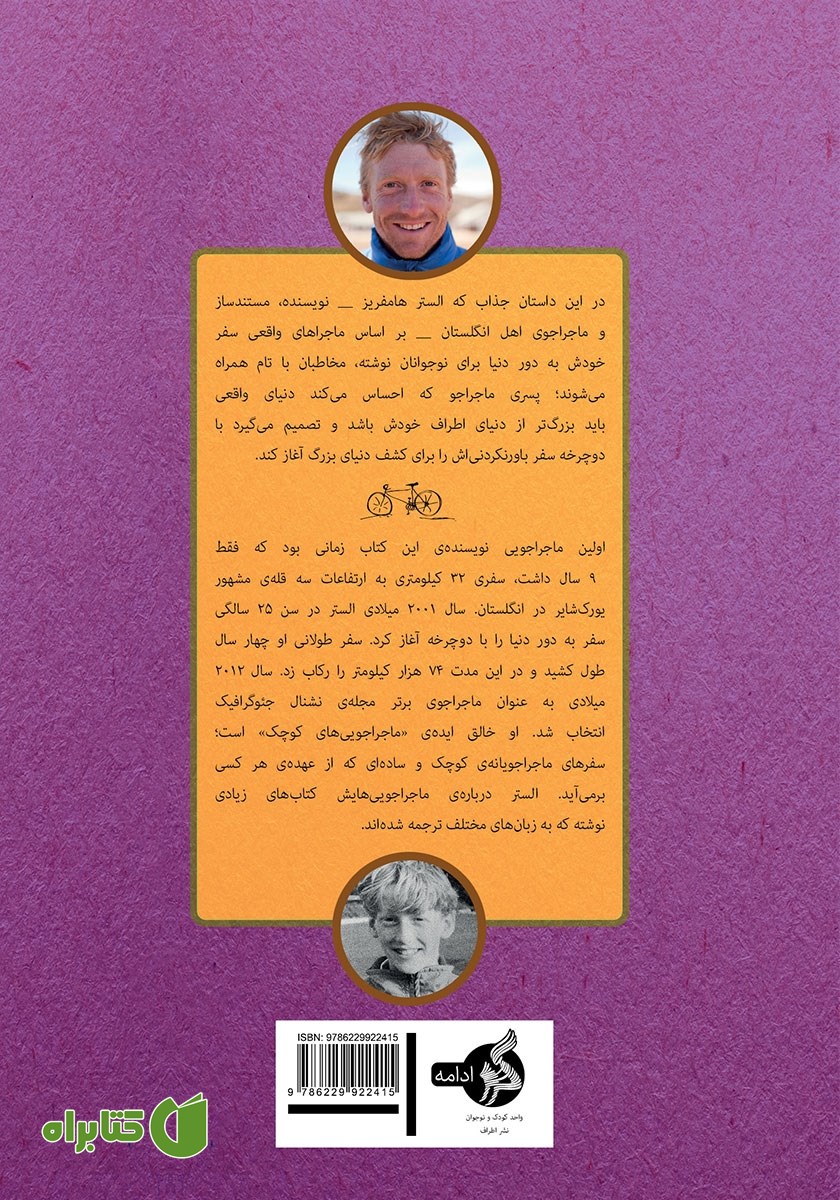 در این داستان جذاب که الستر هامفریز __ نویسنده، مستندساز
و ماجراجوی اهل انگلستان __ بر اساس ماجراهای واقعی سفر
خودش به دور دنیا برای نوجوانان نوشته، مخاطبان با تام همراه
می‌شوند؛ پسری ماجراجو که احساس می‌کند دنیای واقعی
باید بزرگ‌تر از دنیای اطراف خودش باشد و تصمیم می‌گیرد با
دوچرخه سفر باورنکردنی‌اش را برای کشف دنیای بزرگ آغاز کند.
اولین ماجراجویی نویسنده‌ی این کتاب زمانی بود که فقط
۹ سال داشت، سفری ۳۲ کیلومتری به ارتفاعات سه قله‌ی مشهور
یورک‌شایر در انگلستان. سال ۲۰۰۱ میلادی الستر در سن ۲۵ سالگی
سفر به دور دنیا را با دوچرخه آغاز کرد. سفر طولانی او چهار سال
طول کشید و در این مدت ۷۴ هزار کیلومتر را رکاب زد. سال ۲۰۱۲
میلادی به عنوان ماجراجوی برتر مجله‌ی نشنال جئوگرافیک
انتخاب شد. او خالق ایده‌ی «ماجراجویی‌های کوچک» است؛
سفرهای ماجراجویانه‌ی کوچک و ساده‌ای که از عهده‌ی هر کسی
برمی‌آید. الستر درباره‌ی ماجراجویی‌هایش کتاب‌های زیادی
نوشته که به زبان‌های مختلف ترجمه شده‌اند.
ISBN: 9786229922415
9 786229 922415
ادامه
واحد کودک و نوجوان
نشر اطراف
کتابراه